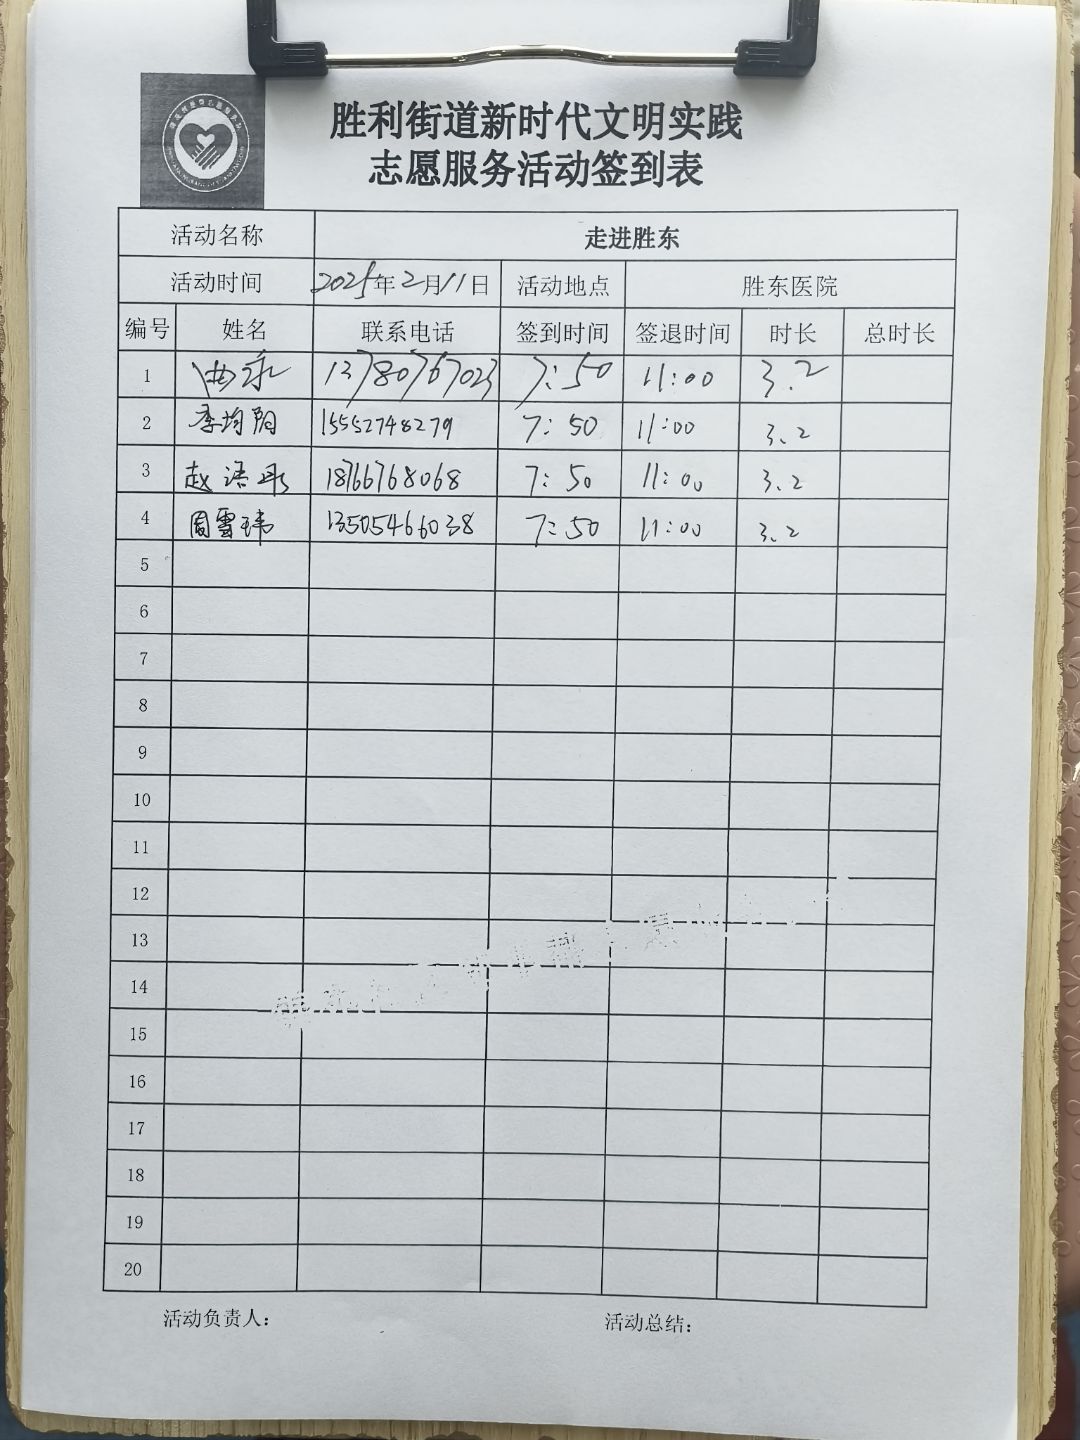 胜利街道新时代文明实践
志愿服务活动签到表
活动名称 走进胜东
活动时间 2025年2月11日 活动地点 胜东医院
编号 姓名 联系电话 签到时间 签退时间 时长 总时长
1 13780767023 7:50 11:00 3.2
2 李均阳 15552748279 7:50 11:00 3.2
3 赵语彤 18766768068 7:50 11:00 3.2
4 周雪玮 13505466038 7:50 11:00 3.2
5
6
7
8
9
10
11
12
13
14
15
16
17
18
19
20
活动负责人： 活动总结：